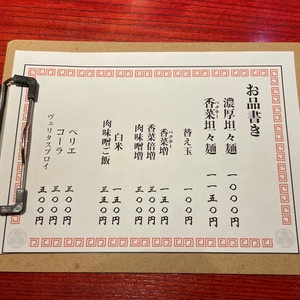 お品書き
濃厚坦々麺 一〇〇〇円
パクチー
香菜坦々麺 一一五〇円
替え玉 一〇〇円
パクチー
香菜増 一五〇円
香菜倍増 三〇〇円
肉味噌増 三五〇円
白米 一五〇円
肉味噌ご飯 三五〇円
ペリエ 三〇〇円
コーラ 三〇〇円
ヴェリタスブロイ 五〇〇円